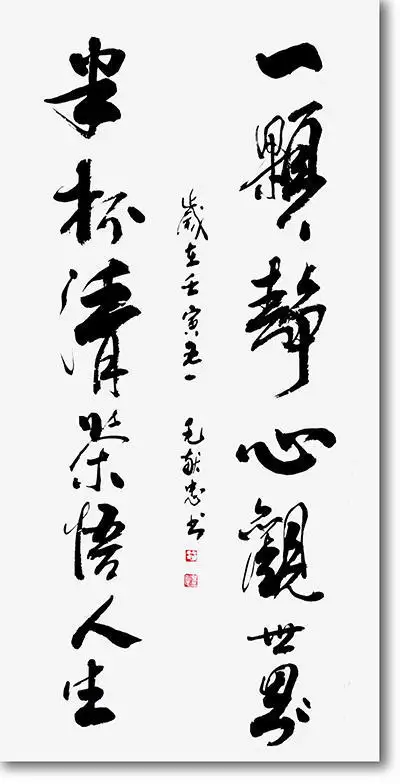 一顆靜心觀世界
歲在壬寅 毛献忠书
半杯清茶悟人生